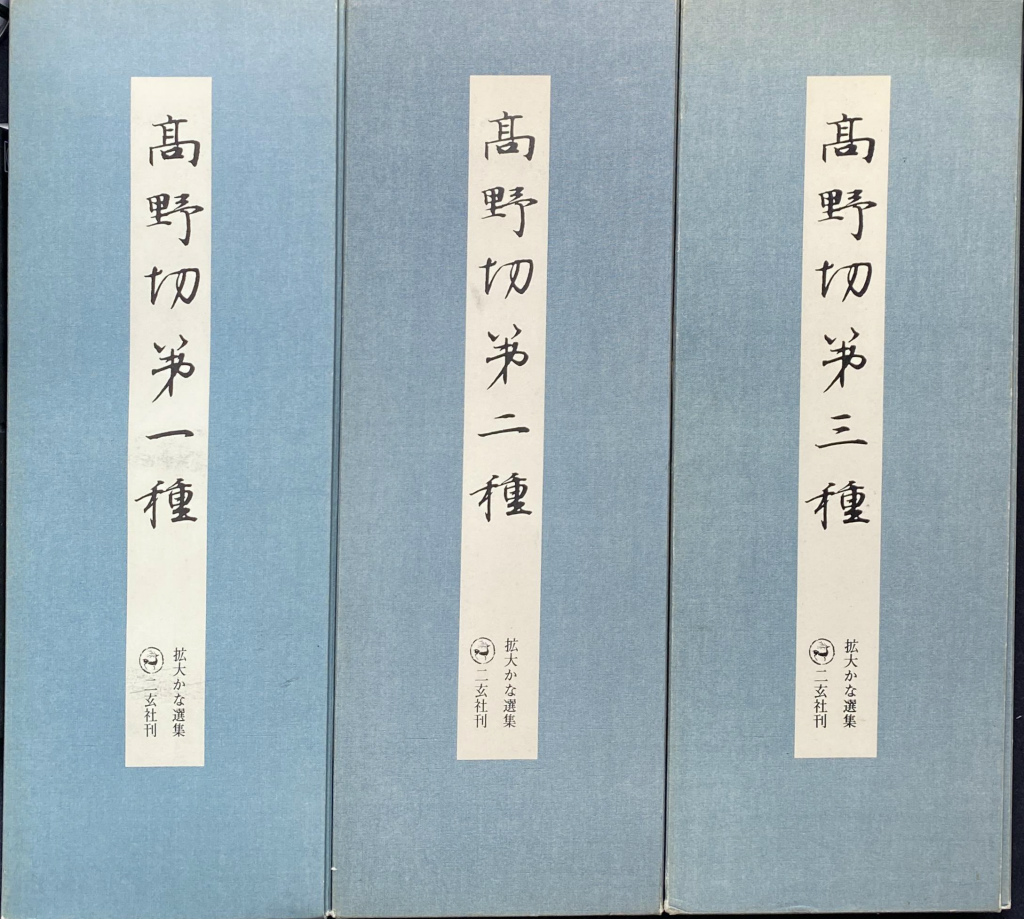 髙野切第一種
拡大かな選集
二玄社刊
髙野切第二種
拡大かな選集
二玄社刊
髙野切第三種
拡大かな選集
二玄社刊